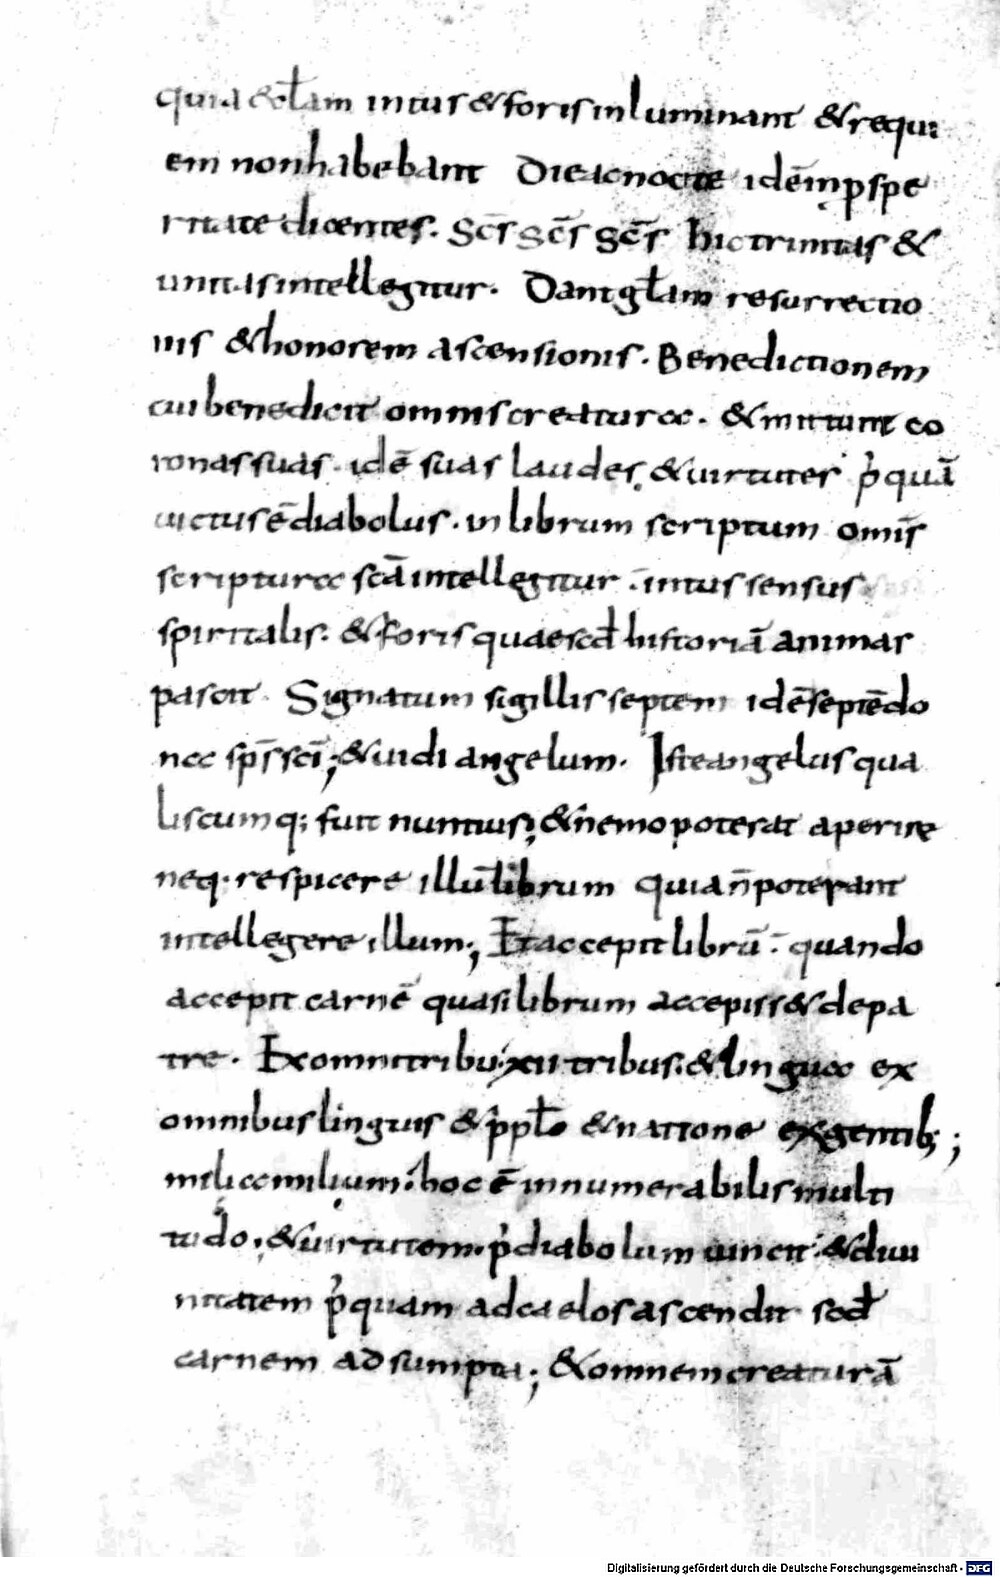 quia & eccłam intus & foris inluminant & requi
em non habebant Die ac nocte idē inpspe
ritate dicentes. Scs̄ scs̄ scs̄ hic trinitas &
unitas intellegitur. Dant głam resurrectio
nis & honorem ascensionis. Benedictionem
cui benedicit omnis creaturae. & mittunt co
ronas suas. idē suas laudes, & uirtutes p̄ quā
uictus ē diabolus. in librum scriptum omīs
scripturae scā intellegitur. intus sensus
spiritalis. & foris quae scđ historiā animas
pascit. Signatum sigillis septem idē septē do
nec sps̄ scī; & uidi angelum. Iste angelus qua
liscumq; fuit nuntius; & nemo poterat aperire
neq. respicere illū librum quia n̄ poterant
intellegere illum; Et accepit librū. quando
accepit carnē quasi librum accepiss& de pa
tre. Ex omni tribu. xii tribus. & linguae ex
omnibus linguis & ppło & natione ex gentib;;
milia milium. hoc ē innumerabilis multi
tudo, & uirtutem. p̄ diabolum uincit. & diui
nitatem p̄ quam ad caelos ascendit scđ
carnem adsumpta; & omnem creaturā
Digitalisierung gefördert durch die Deutsche Forschungsgemeinschaft - DFG